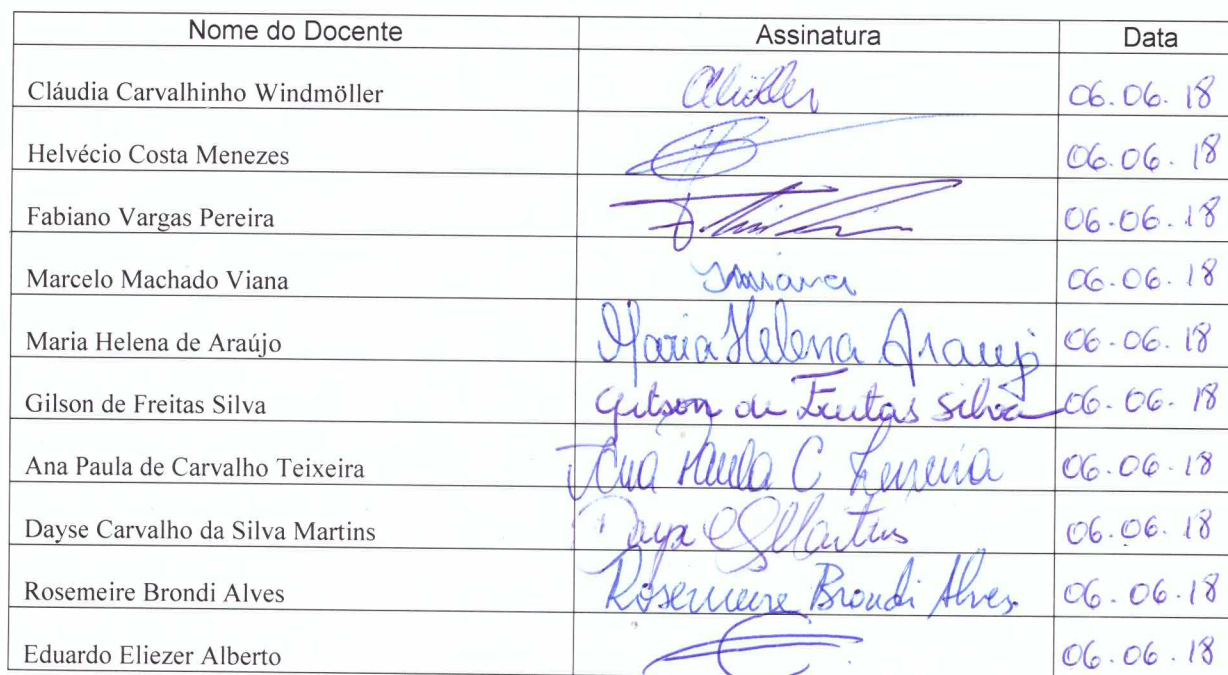 Nome do Docente Assinatura Data
Cláudia Carvalhinho Windmöller 06.06.18
Helvécio Costa Menezes 06.06.18
Fabiano Vargas Pereira 06.06.18
Marcelo Machado Viana 06.06.18
Maria Helena de Araújo Maria Helena Araujo 06.06.18
Gilson de Freitas Silva Gilson de Freitas Silva 06.06.18
Ana Paula de Carvalho Teixeira Ana Paula C Teixeira 06.06.18
Dayse Carvalho da Silva Martins Dayse CS Martins 06.06.18
Rosemeire Brondi Alves Rosemeire Brondi Alves 06.06.18
Eduardo Eliezer Alberto 06.06.18